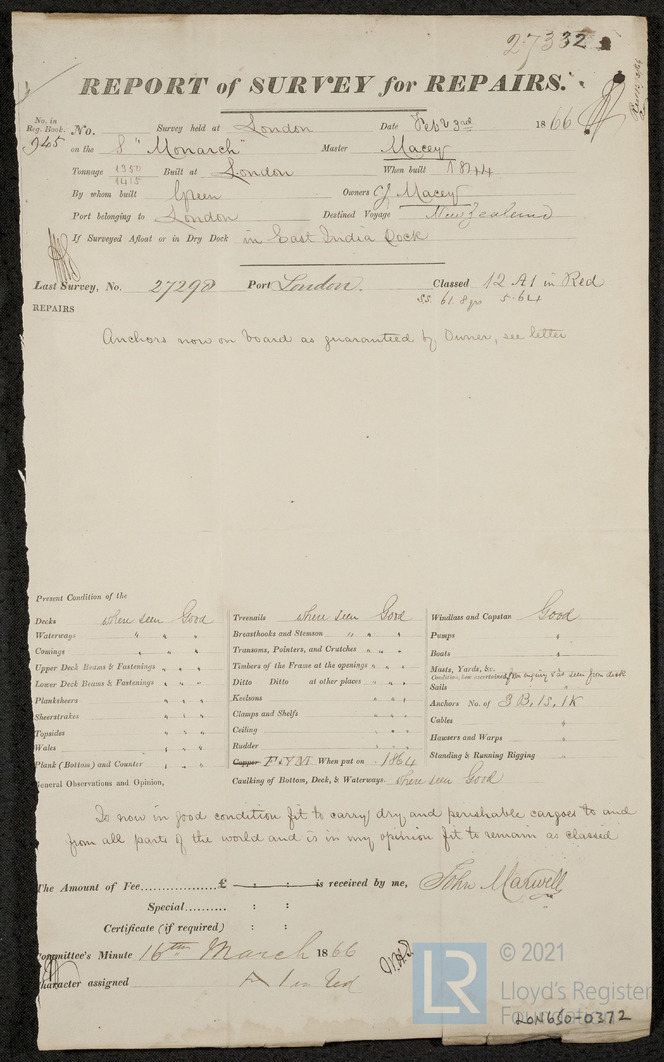 27332
REPORT of SURVEY for REPAIRS.
No. in Reg. Book. No. Survey held at London Date Feb 23rd 1866
945 on the S "Monarch" Master Macey
Tonnage 1350 1415 Built at London When built 1844
By whom built Green Owners CJ Macey
Port belonging to London Destined Voyage New Zealand
If Surveyed Afloat or in Dry Dock in East India Dock
Last Survey, No. 27290 Port London. Classed 12 A1 in Red
SS. 61. 8 yrs 5.64
REPAIRS
Anchors now on board as guaranteed by Owner, see letter
Present Condition of the
Decks where seen Good
Waterways " " "
Comings " " "
Upper Deck Beams & Fastenings " " "
Lower Deck Beams & Fastenings " " "
Planksheers " " "
Sheerstrakes " " "
Topsides " " "
Wales " " "
Plank (Bottom) and Counter " " "
Treenails where seen Good
Breasthooks and Stemson " " "
Transoms, Pointers, and Crutches " " "
Timbers of the Frame at the openings " " "
Ditto Ditto at other places " " "
Keelsons " " "
Clamps and Shelfs " " "
Ceiling " " "
Rudder " " "
Copper F & YM When put on 1864
Caulking of Bottom, Deck, & Waterways. where seen Good
Windlass and Capstan Good
Pumps "
Boats "
Masts, Yards, &c.
Condition, how ascertained, from enquiry & as seen from deck
Sails "
Anchors No. of 3 B, 1S, 1K
Cables "
Hawsers and Warps "
Standing & Running Rigging "
General Observations and Opinion,
Is now in good condition fit to carry dry and perishable cargoes to and
from all parts of the world and is in my opinion fit to remain as classed
The Amount of Fee................£ : : is received by me, John Maxwell
Special.......... : :
Certificate (if required) : :
Committee's Minute 16th March 1866
Character assigned A 1 in Red
LR © 2021
Lloyd's Register
Foundation
LON650-0372